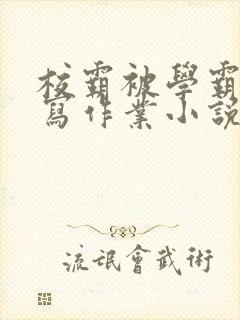 校霸被學霸
寫作業小說
流氓會武術